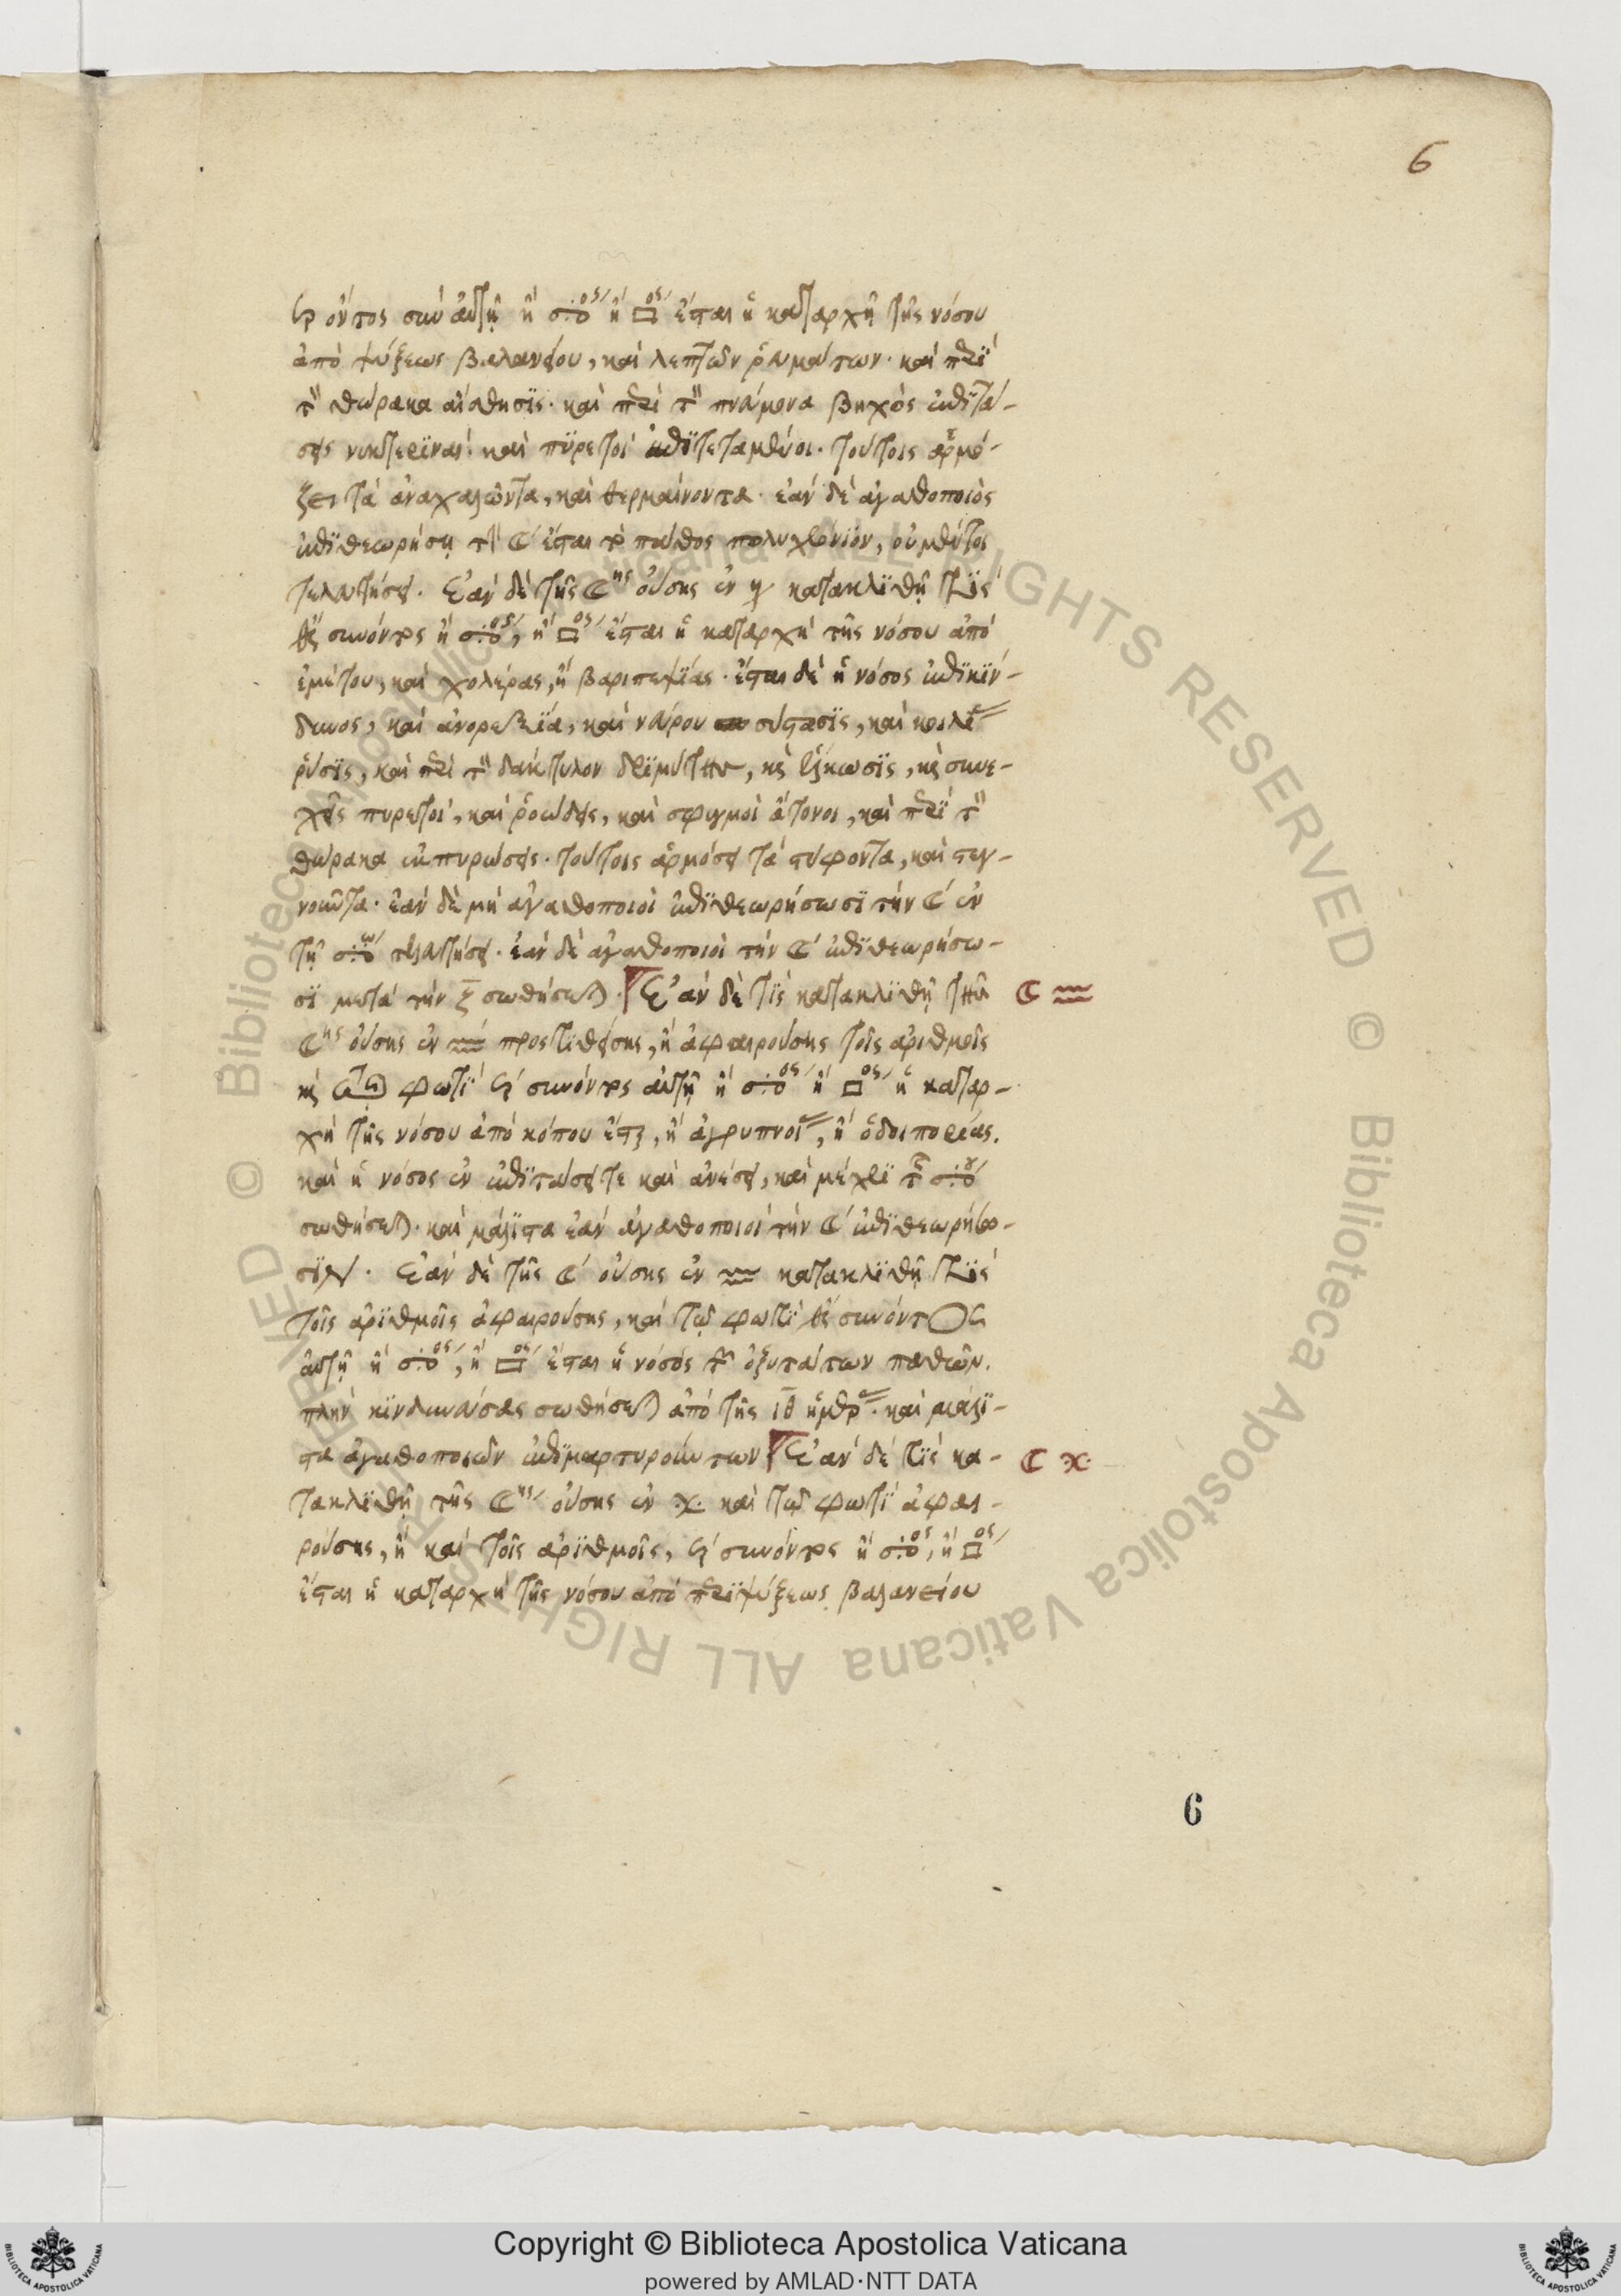 6
♄ ὄντος σὺν αὐτῇ ἢ ☍ος ἢ □ος ἔσται ἡ καταρχὴ τῆς νόσου
ἀπὸ ψύξεως βαλανείου, καὶ λεπτῶν ῥευμάτων· καὶ περὶ
τὸν θώρακα αἴσθησις· καὶ περὶ τὸν πνεύμονα βηχὸς ἐπιτά-
σεις νυκτεριναί· καὶ πυρετοὶ ἐπιτεταμένοι. τούτοις ἁρμό-
ζει τὰ ἀναχαλῶντα, καὶ θερμαίνοντα. ἐὰν δὲ ἀγαθοποιὸς
ἐπιθεωρήσῃ τὴν ☾ ἔσται τὸ πάθος πολυχρόνιον, οὐ μέντοι
τελευτήσει. Ἐὰν δὲ τῆς ☾ης οὔσης ἐν κατακλιθῇ τις
συνόντος ἢ ☍ος, ἢ □ος ἔσται ἡ καταρχὴ τῆς νόσου ἀπὸ
ἐμέτου, καὶ χολέρας, ἢ βαριπεψίας. ἔσται δὲ ἡ νόσος ἐπικίν-
δυνος, καὶ ἀνορεξία, καὶ νεύρου σύστασις, καὶ κοιλίας
ῥύσις, καὶ περὶ τὸν δάκτυλον δριμύτης, καὶ ἕλκωσις, καὶ συνε-
χεῖς πυρετοί, καὶ ῥοώδεις, καὶ σφυγμοὶ ἄτονοι, καὶ περὶ τὸν
θώρακα ἐκπυρώσεις. τούτοις ἁρμόσει τὰ στύφοντα, καὶ στεγ-
νοῦντα. ἐὰν δὲ μὴ ἀγαθοποιοὶ ἐπιθεωρήσωσι τὴν ☾ ἐν
τῇ ☍ω τελευτήσει. ἐὰν δὲ ἀγαθοποιοὶ τὴν ☾ ἐπιθεωρήσω-
σι μετὰ τὴν ξ σωθήσεται. Ἐὰν δὲ τις κατακλιθῇ τῆς ☾ ♒
☾ης οὔσης ἐν ♒ προστιθείσης, ἢ ἀφαιρούσης τοῖς ἀριθμοῖς
καὶ τῷ φωτὶ ♄ συνόντος αὐτῇ ἢ ☍ος ἢ □ος ἡ καταρ-
χὴ τῆς νόσου ἀπὸ κόπου ἔσται, ἢ ἀγρυπνίας, ἢ ὁδοιπορίας.
καὶ ἡ νόσος ἐν ἐπιτάσει τε καὶ ἀνέσει, καὶ μέχρι τῆς ☍ου
σωθήσεται. καὶ μάλιστα ἐὰν ἀγαθοποιοὶ τὴν ☾ ἐπιθεωρήσω-
σιν. Ἐὰν δὲ τῆς ☾ οὔσης ἐν ♒ κατακλιθῇ τις
τοῖς ἀριθμοῖς ἀφαιρούσης, καὶ τῷ φωτὶ συνόντος
αὐτῇ ἢ ☍ος, ἢ □ος ἔσται ἡ νόσος τῶν ὀξυτάτων παθῶν.
πλὴν κινδυνεύσας σωθήσεται ἀπὸ τῆς ιθ ἡμέρας. καὶ μάλι-
στα ἀγαθοποιῶν ἐπιμαρτυρούντων Ἐὰν δὲ τις κα- ☾ ♓
τακλιθῇ τῆς ☾ης οὔσης ἐν ♓ καὶ τῷ φωτὶ ἀφαι-
ρούσης, ἢ καὶ τοῖς ἀριθμοῖς, ♄ συνόντος ἢ ☍ος, ἢ □ος
ἔσται ἡ καταρχὴ τῆς νόσου ἀπὸ περιψύξεως βαλανείου
6
© Biblioteca Apostolica Vaticana ALL RIGHTS RESERVED © Biblioteca Apostolica Vaticana ALL RIGHTS RESERVED
Copyright © Biblioteca Apostolica Vaticana
powered by AMLAD·NTT DATA
BIBLIOTECA APOSTOLICA VATICANA
BIBLIOTECA APOSTOLICA VATICANA